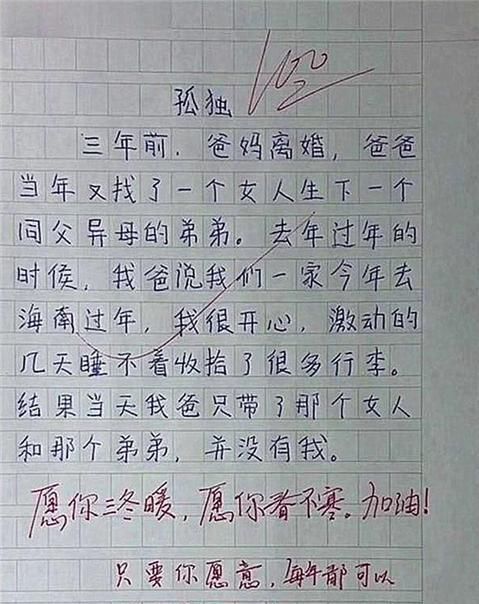 孤独
100
三年前，爸妈离婚，爸爸
当年又找了一个女人生下一个
同父异母的弟弟。去年过年的
时侯，我爸说我们一家今年去
海南过年，我很开心，激动的
几天睡不着收拾了很多行李。
结果当天我爸只带了那个女人
和那个弟弟，并没有我。
愿你三冬暖，愿你春不寒。加油！
只要你愿意，每年都可以